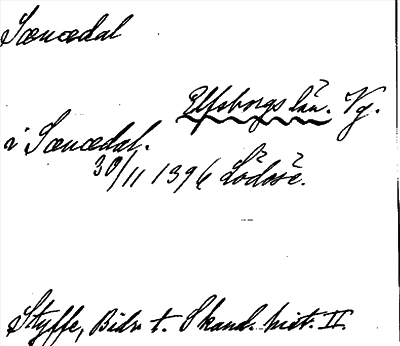 Sæuædal
Elfsborgs län. Vg.
i Sæuædal.
30/11 1396 Lödose.
Styffe, Bidr t. Skand. hist. II